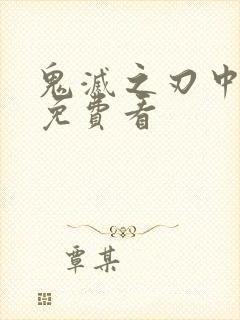 鬼滅之刃中
免費看
覃某